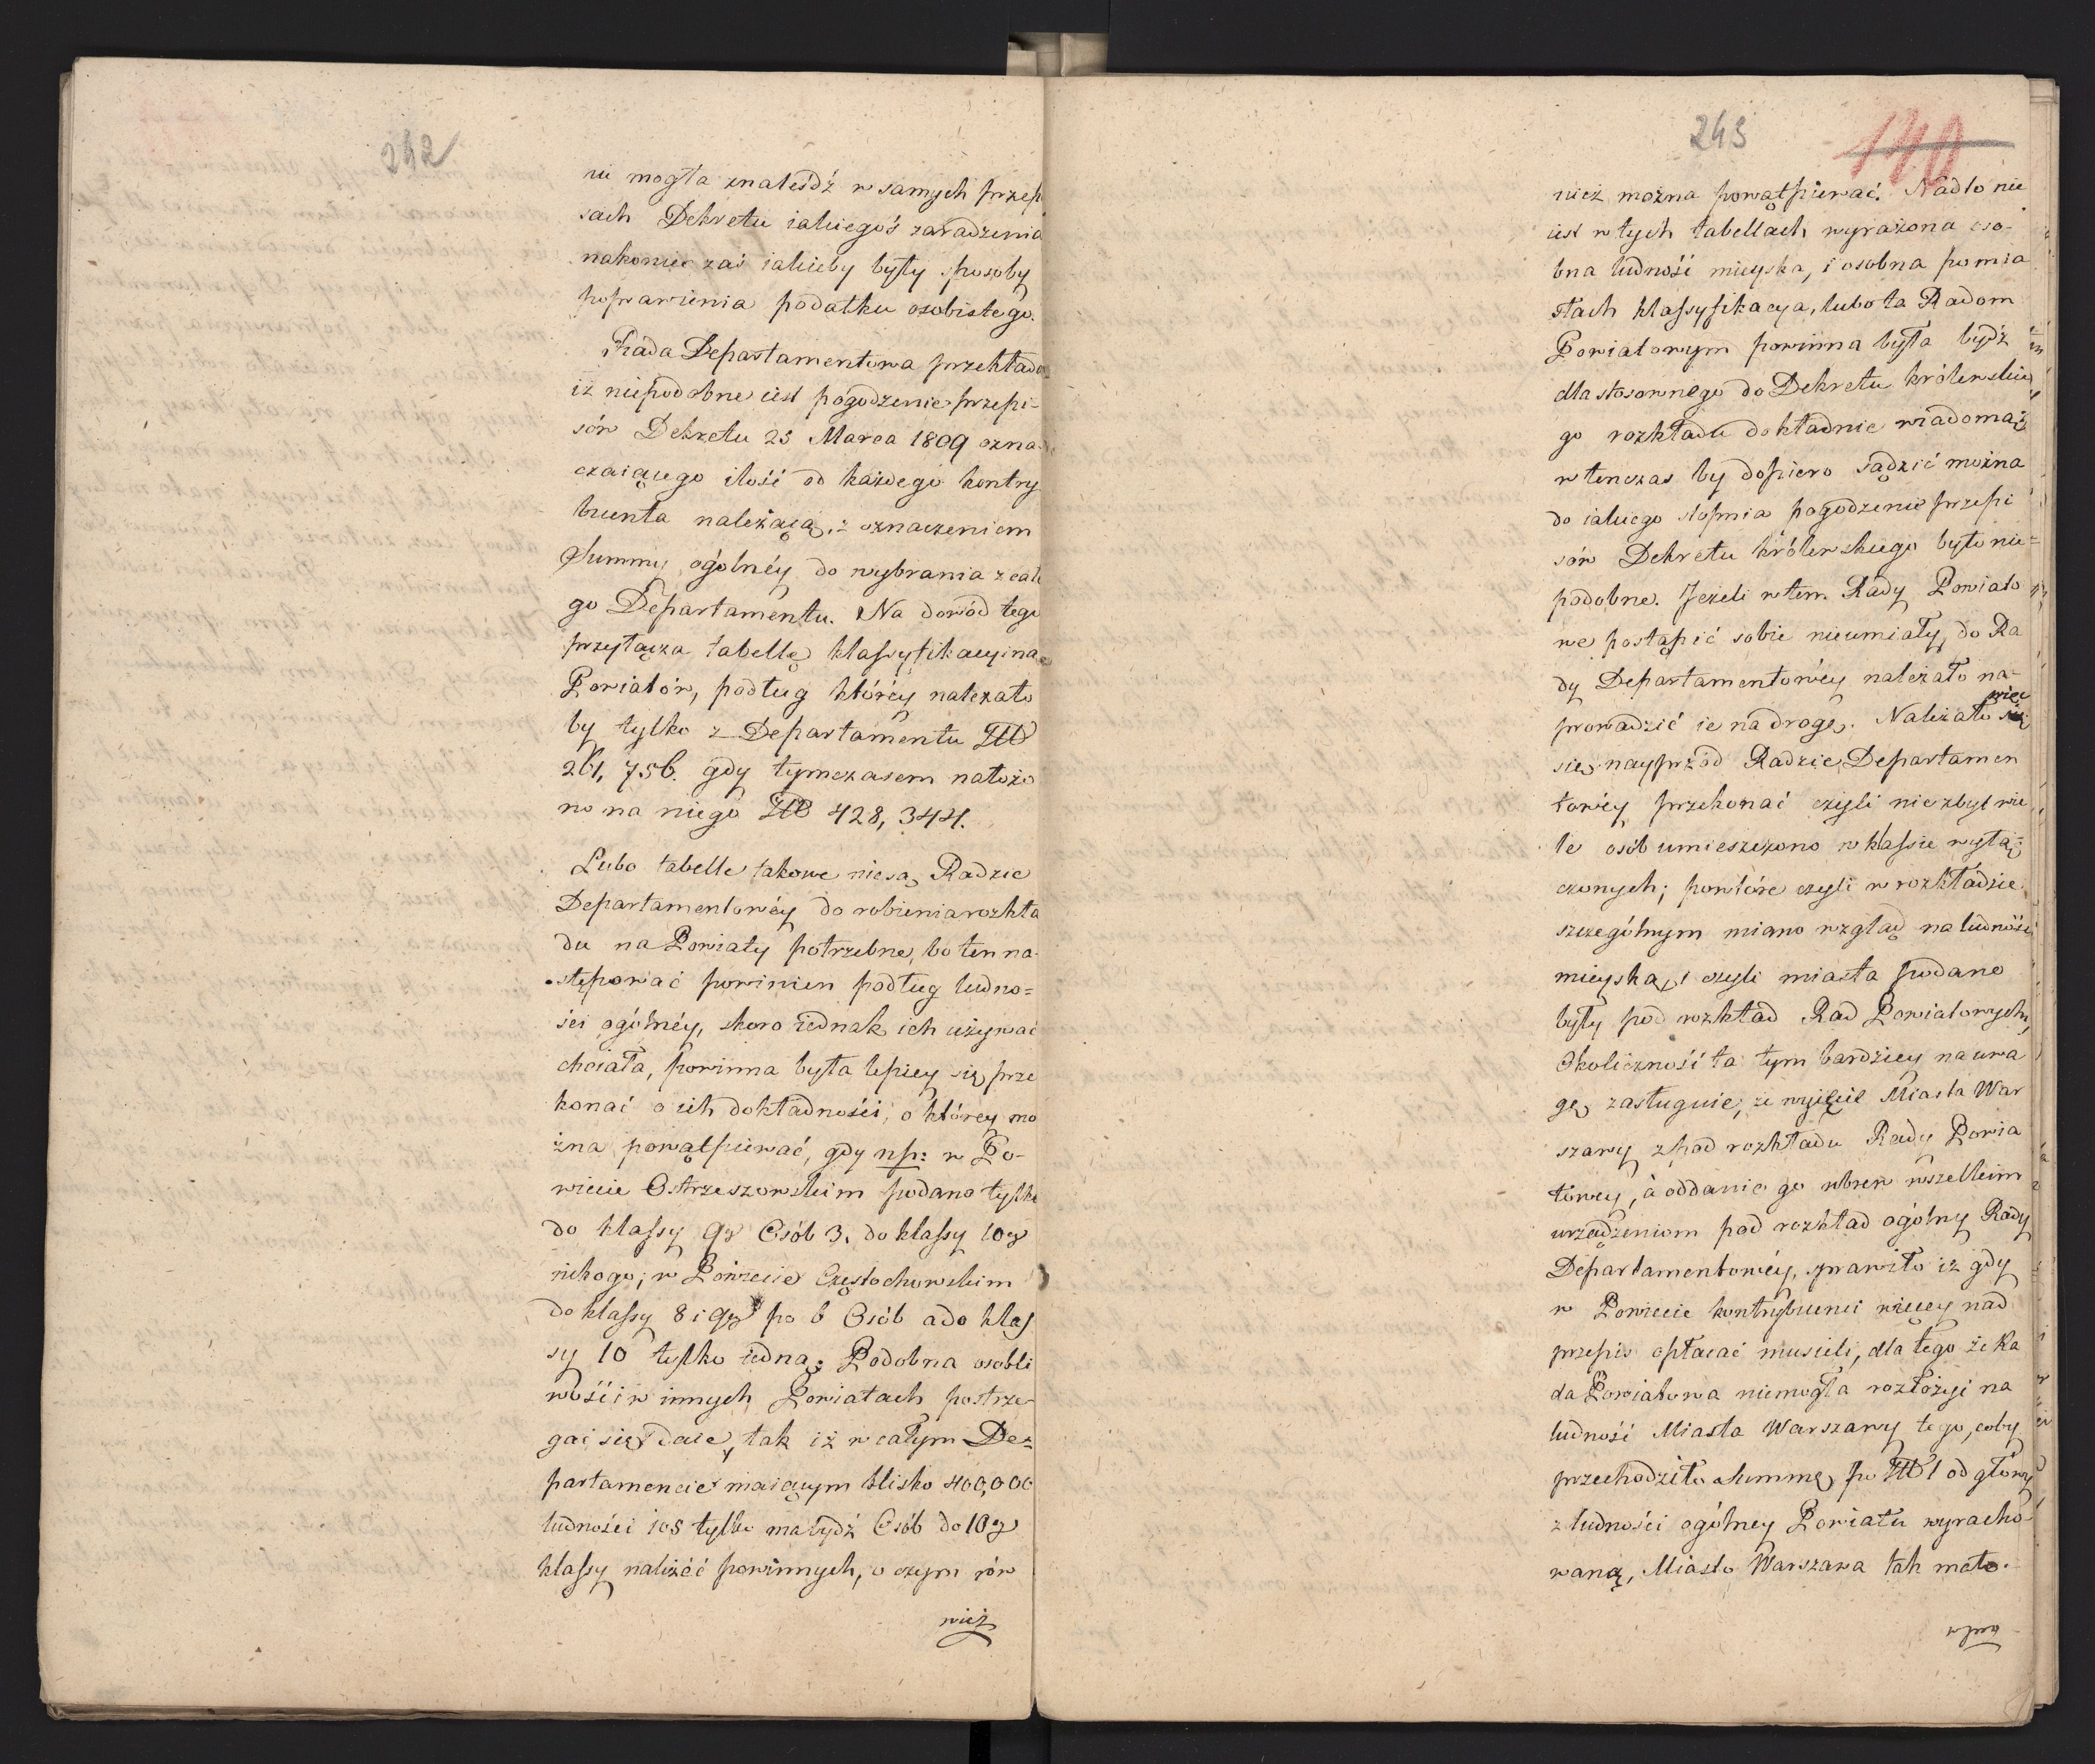 242
ni mogła znaleśdź w samych przepi
sach Dekretu iakiegoś zaradzenia
nakoniec zaś iakieby były sposoby
poprawienia podatku osobistego.
Rada Departamentowa przekłada
iż niepodobne iest pogodzenie przepi-
sów Dekretu 23 Marca 1809 ozna-
czaiącego ilość od każdego kontry
buenta należącą, z oznaczeniem
Summy ogólnéy do wybrania z całe
go Departamentu. Na dowód tego
przyłącza tabellę klassyfikacyiną
Powiatów, podług któréy należało
by tylko z Departamentu
261,756. gdy tymczasem nałożo
no na niego 428,344.
Lubo tabelle takowe nie są Radzie
Departamentowéy do robienia rozkła
du na Powiaty potrzebne, bo ten na-
stępować powinien podług ludno=
ści ogólnéy, skoro iednak ich używać
chciała, powinna była lepiey się prze
konać o ich dokładności, o którey mo
żna powątpiewać, gdy np: w Po-
wiecie Ostrzeszowskim podano tylko
do klassy 9y Osób 3. do klassy 10y
nikogo; w Powiecie Częstochowskim
do klassy 8 i 9y po 6 Osób a do klas
sy 10 tylko iedna; Podobna osobli
wość i w innych Powiatach postrze-
gać się daie, tak iż w całym De=
partamencie maiącym blisko 400,000
ludności 105 tylko ma bydź Osób do 10y
klassy należéć powinnych, o czym rów
nież
243
140
nież można powątpiewać. Nadto nie
iest w tych tabellach wyrażona oso-
bna ludność mieyska, i osobna po mia
stach klassyfikacya, lubo ta Radom
Powiatowym powinna była bydź
dla stosownego do Dekretu królewskie
go rozkładu dokładnie wiadomą;
w tenczas by dopiero sądzić można
do iakiego stopnia pogodzenie przepi
sów Dekretu królewskiego było nie=
podobne. Jeżeli w tem Rady Powiato
we postąpić sobie nieumiały, do Ra
dy Departamentowéy należało na-
prowadzić ie na drogę. Należało więc
się nayprzód Radzie Departamen
towéy przekonać czyli nie zbyt wie
le osób umieszczono w klassie wyłą=
czonych; powtóre czyli w rozkładzie
szczególnym miano wzgląd na ludność
mieyską, i czyli miasta podane
były pod rozkład Rad Powiatowych,
Okoliczność ta tym bardziey na uwa
gę zasługuie, że wyięcie Miasta War
szawy z pod rozkładu Rady Powia
towey, à oddanie go wbrew wszelkim
urządzeniom pod rozkład ogólny Rady
Departamentowéy, sprawiło iż gdy
w Powiecie kontrybuenci więcey nad
przepis opłacać musieli, dla tego że Ra
da Powiatowa niemogła rozłożyć na
ludność Miasta Warszawy tego, coby
przechodziło summę po 1 od głowy
z ludności ogólney Powiatu wyracho
waną, Miasto Warszawa tak mało
wpra